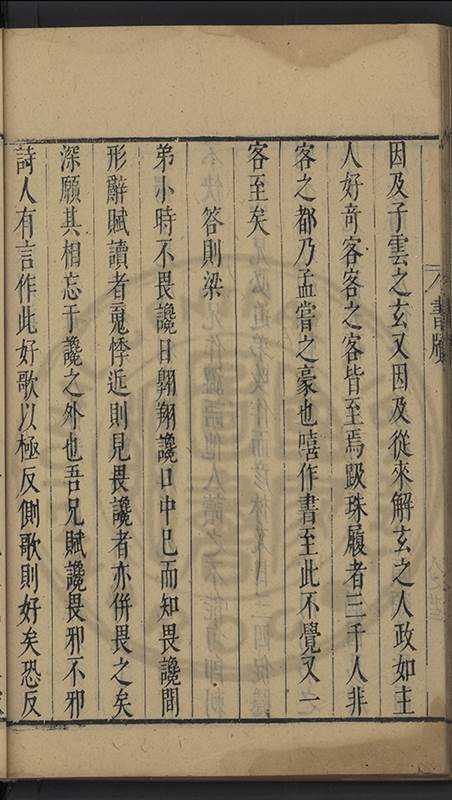 書牘
因及子雲之玄又因及從來解玄之人政如主
人好奇客客之客皆至焉躡珠履者三千人非
客之都乃孟嘗之豪也嘻作書至此不覺又一
客至矣
答則梁
弟小時不畏讒日翱翔讒口中已而知畏讒間
形辭賦讀者䰟悸近則見畏讒者亦併畏之矣
深願其相忘于讒之外也吾兄賦讒畏邪不邪
詩人有言作此好歌以極反側歌則好矣恐反